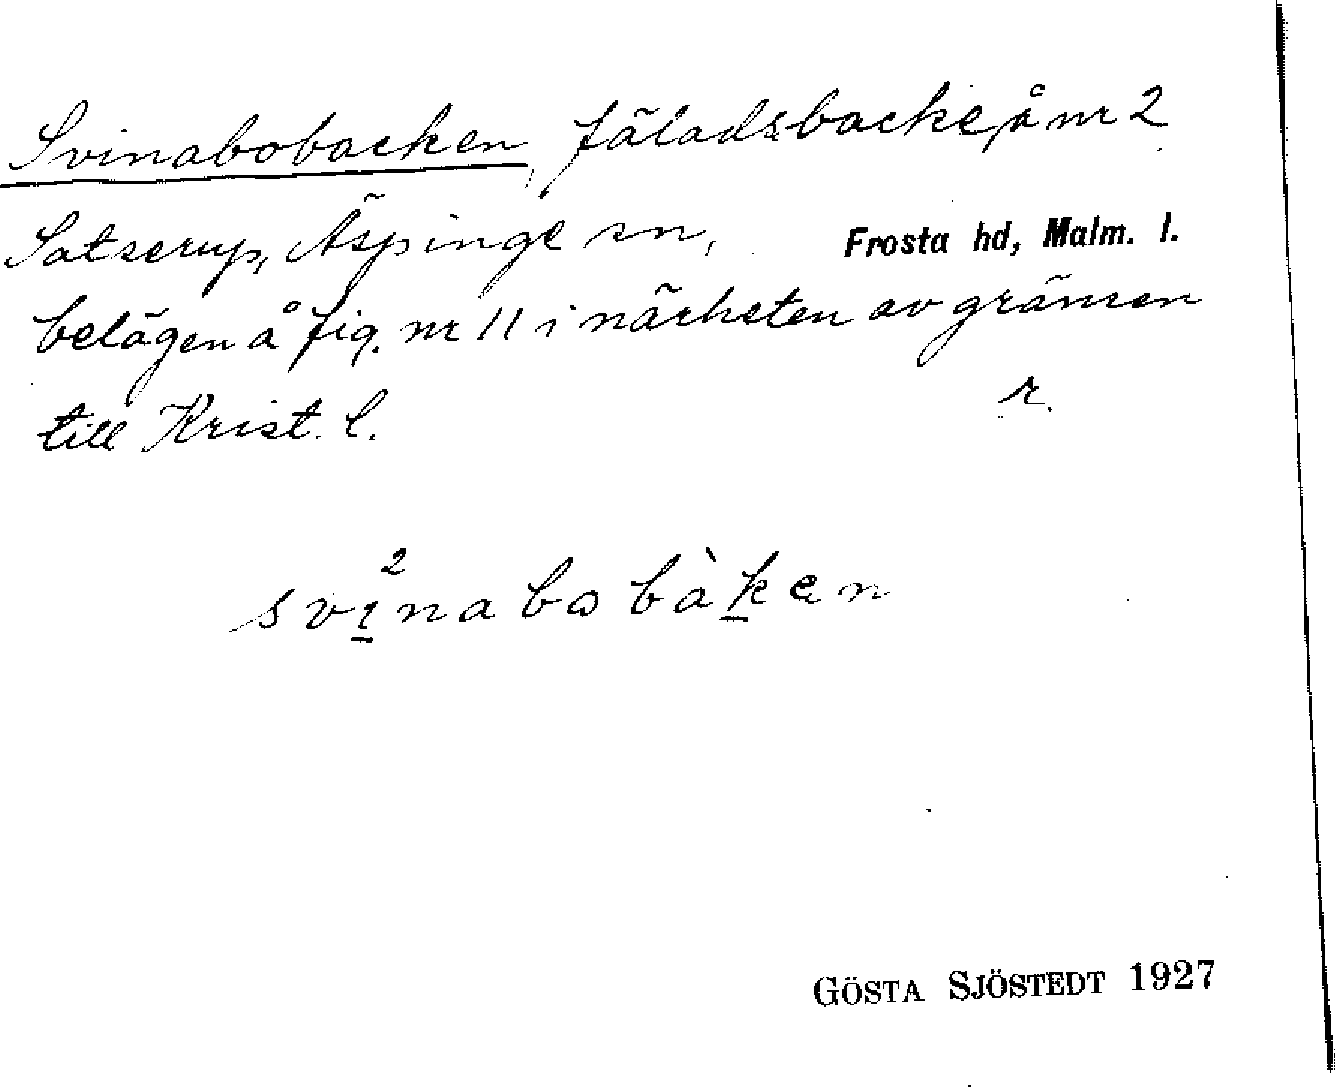 Svinabobacken, fäladsbacke å nr 2
Satserup, Äspinge sn, Frosta hd, Malm. l.
belägen å fig. nr 11 i närheten av gränsen
till Krist. l. r.
svi²nabobàken
GÖSTA SJÖSTEDT 1927